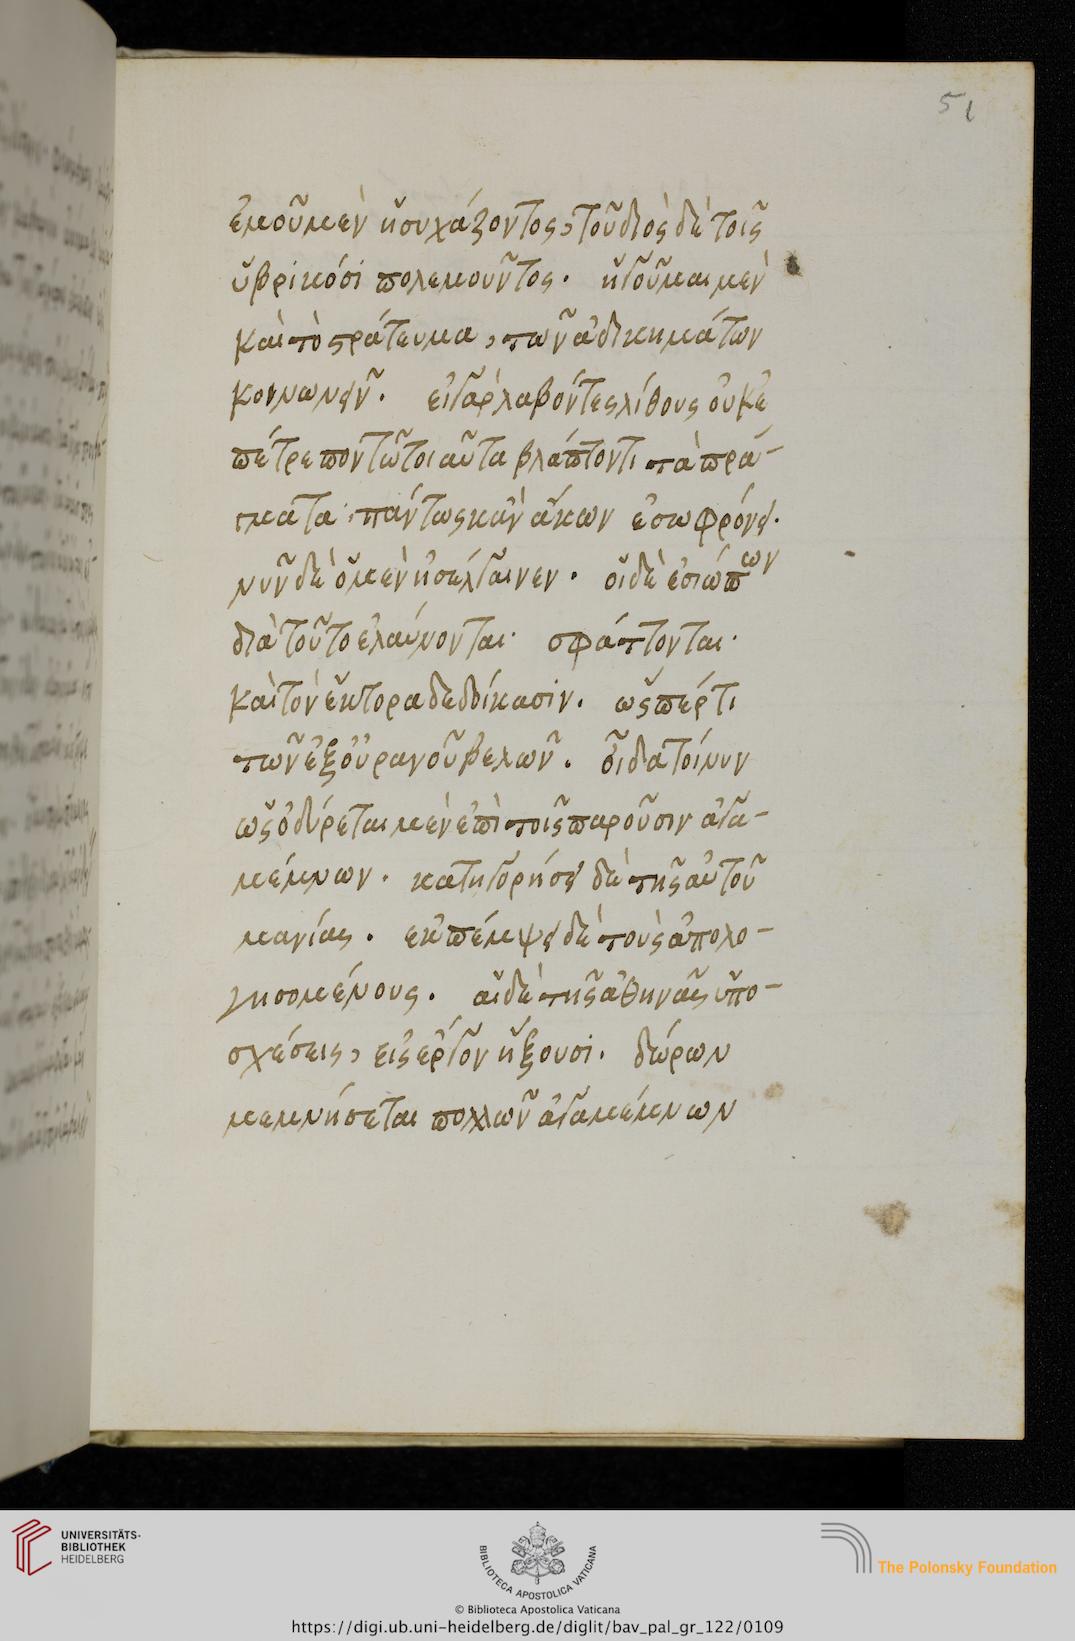 51
ἐμοῦ μὲν ἡσυχάζοντος, τοῦ διὸς δὲ τοῖς
ὑβρικόσι πολεμοῦντος. ἡγοῦμαι μὲν
καὶ τὸ στράτευμα, τῶν ἀδικημάτων
κοινωνεῖν. εἰ γὰρ λαβόντες λίθους οὐκ ἐ
πέτρεπον τῷ τοιαῦτα βλάπτοντι τὰ πρά-
γματα, πάντως κἂν ἄκων ἐσωφρόνει.
νῦν δὲ ὁ μὲν ἠσέλγαινεν. οἱ δὲ ἐσιώπων
διὰ τοῦτο ἐλαύνονται. σφάττονται.
καὶ τὸν ἕκτορα δεδοίκασιν. ὥσπερ τι
τῶν ἐξ οὐρανοῦ βελῶν. οἶδα τοίνυν
ὡς ὀδύρεται μὲν ἐπὶ τοῖς παροῦσιν ἀγα-
μέμνων. κατηγορήσει δὲ τῆς αὑτοῦ
μανίας. ἐκπέμψει δὲ τοὺς ἀπολο-
γησομένους. αἱ δὲ τῆς ἀθηνᾶς ὑπο-
σχέσεις, εἰς ἔργον ἥξουσι. δώρων
μεμνήσεται πολλῶν ἀγαμέμνων
UNIVERSITÄTS-
BIBLIOTHEK
HEIDELBERG
BIBLIOTECA APOSTOLICA VATICANA
The Polonsky Foundation
© Biblioteca Apostolica Vaticana
https://digi.ub.uni-heidelberg.de/diglit/bav_pal_gr_122/0109